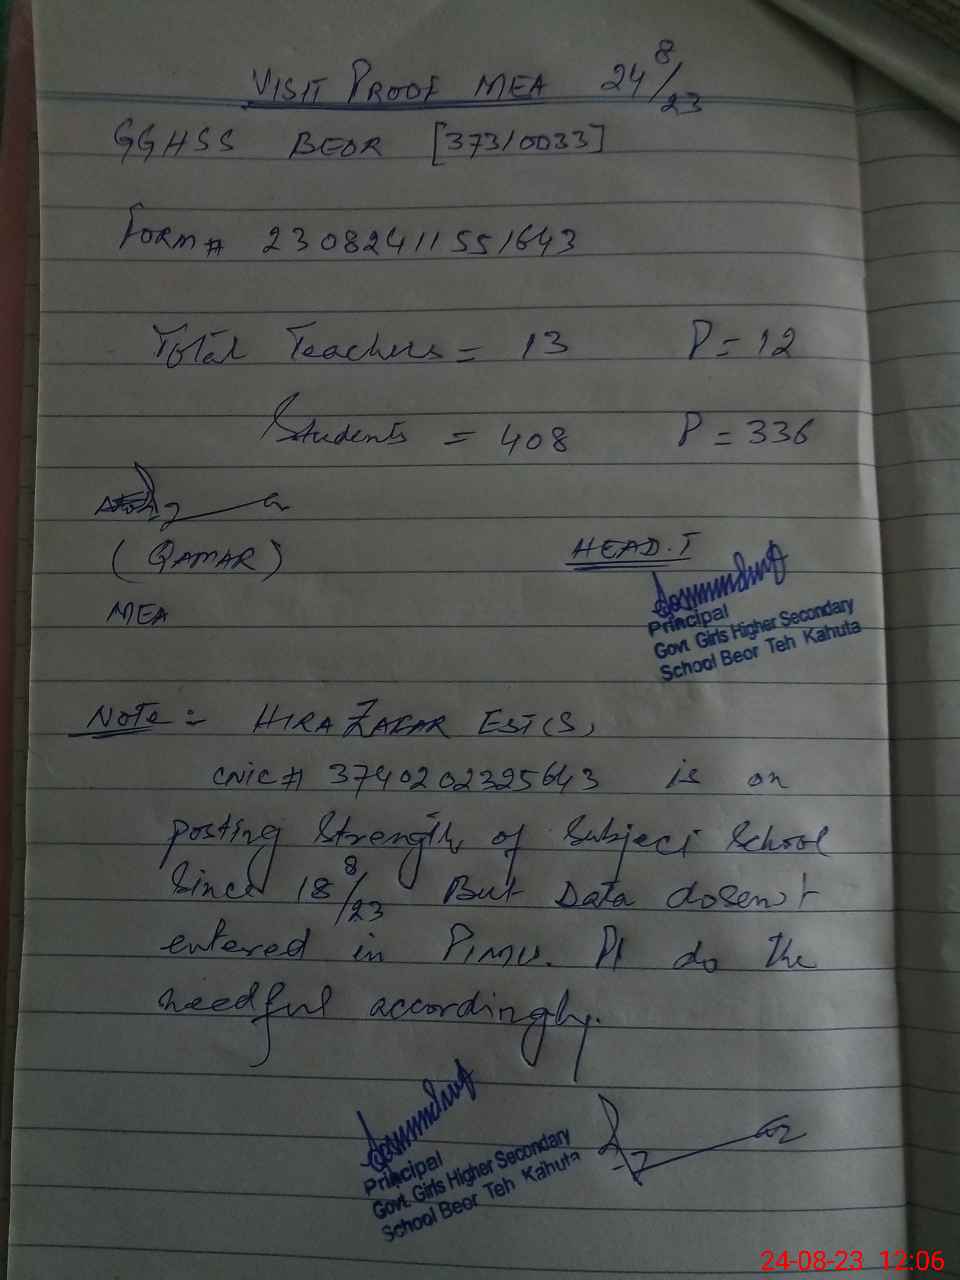 VISIT PROOF MEA 24/8/23
GGHSS BEOR [37310033]
Form # 230824115551643
Total Teachers = 13 P = 12
Students = 408 P = 336
(QAMAR)
MEA
HEAD.T
Principal
Govt. Girls Higher Secondary
School Beor Teh Kahuta
Note :- HIRA ZAKAR EST(S)
CNIC # 3740202325643 is on
posting strength of Subject School
Since 18/8/23 But Data dosen't
entered in PIMU. Pl do the
needful accordingly.
Principal
Govt. Girls Higher Secondary
School Beor Teh Kahuta
24-08-23 12:06